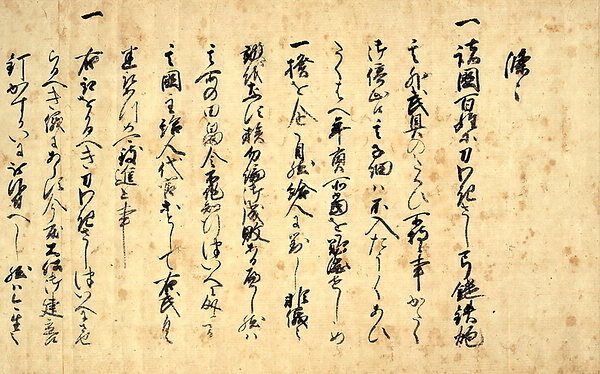 條々
一 諸國百姓等刀わきさし弓鑓鉄炮
其外武具のたくひ所持候事かたく
御停止候其子細ハ不入たうくあひ
たくハへ年貢所當を難渋せしめ
一揆を企自然給人に對し非儀之
族勿論御成敗あるへし然ハ
其所の田畠令不作知行ついへ
其國主給人代官等として右武具
悉取あつめ可致進上事
一 右取をかるへき刀わきさしついへにさせ
らるへき儀にあらす今度大仏御建立
釘かすかひに被仰付へし然ハ今生之